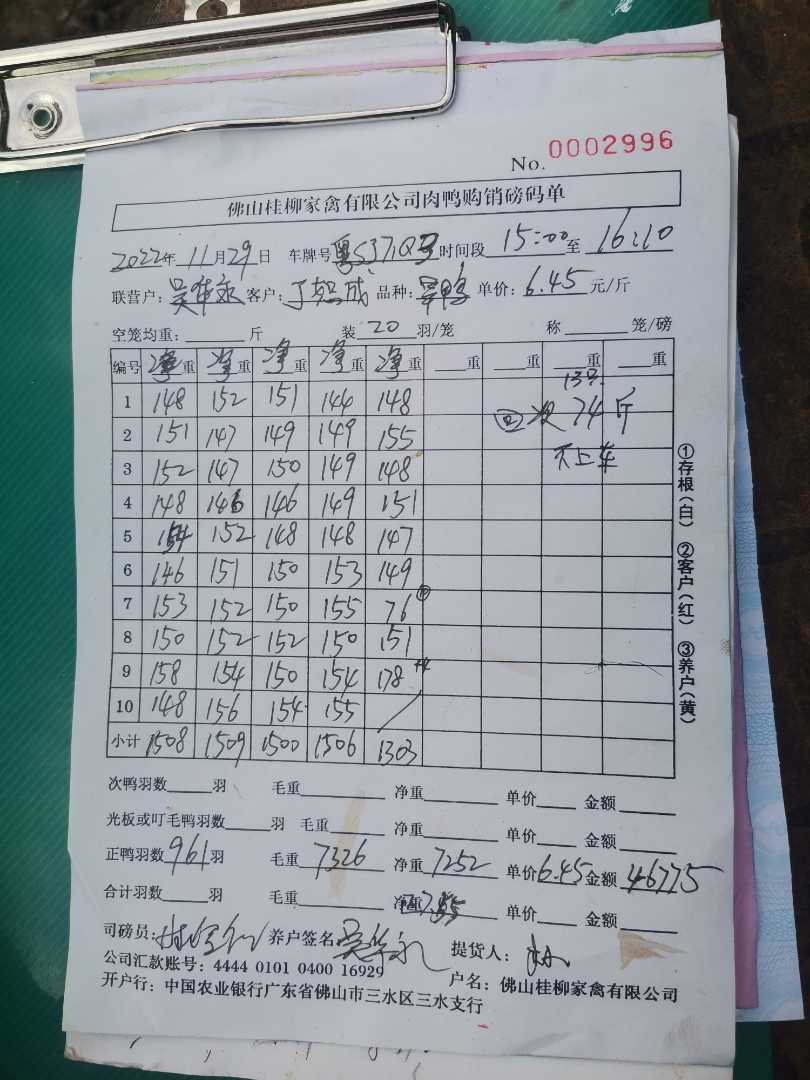 No. 0002996
佛山桂柳家禽有限公司肉鸭购销磅码单
2022年11月29日 车牌号 时间段15:00至16:10
联营户: 客户: 品种: 鸭 单价: 6.45元/斤
空笼均重: 斤 装20羽/笼 称 笼/磅
编号 净重 净重 净重 净重 净重 重 重 重 重
1 148 152 151 144 148
次74斤
2 151 147 149 149 155
3 152 147 150 149 148 不上车
4 148 146 146 149 151
5 154 152 148 148 147
6 146 151 150 153 149
7 153 152 150 155 76 ⑩
8 150 152 152 150 151
9 158 154 150 154 178
10 148 156 154 155
小计 1508 1509 1500 1506 1303
①存根(白) ②客户(红) ③养户(黄)
次鸭羽数 羽 毛重 净重 单价 金额
光板或叮毛鸭羽数 羽 毛重 净重 单价 金额
正鸭羽数961羽 毛重7326 净重7252 单价6.45金额46775
合计羽数 羽 毛重 净重 单价 金额
司磅员: 养户签名 提货人:
公司汇款账号: 4444 0101 0400 16929 户名: 佛山桂柳家禽有限公司
开户行: 中国农业银行广东省佛山市三水区三水支行